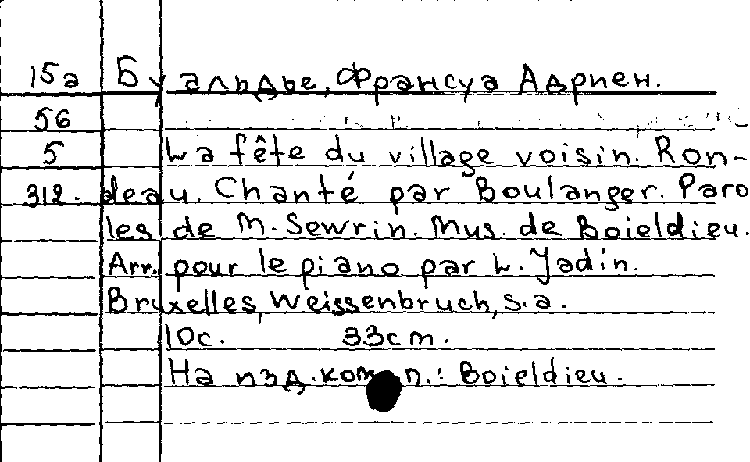 15а Буальдье, Франсуа Адриен.
56
5 La fête du village voisin. Ron-
312. deau. Chanté par Boulanger. Paro
les de M. Sewrin. Mus. de Boieldieu.
Arr. pour le piano par L. Jadin.
Bruxelles, Weissenbruch, s.a.
10c. 33cm.
На изд. комп.: Boieldieu.